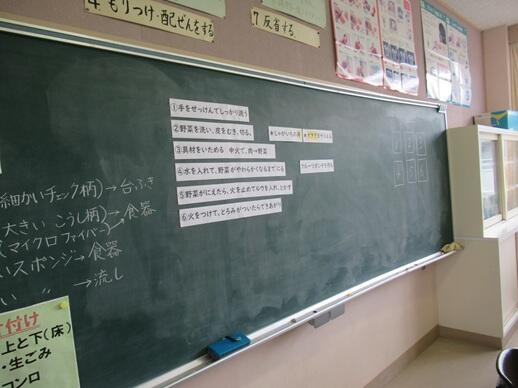 4 もりつけ・配ぜんをする
7 反省する。
①手をせっけんでしっかり洗う
②野菜を洗い、皮をむき、切る。
③具材をいためる 中火で、肉→野菜
④水を入れて、野菜がやわらかくなるまでにる
⑤野菜がにえたら、火を止めてルウを入れ、とかす
⑥火をつけて、とろみがついたらできあがり
★じゃがいもの芽
フルーツポンチを作る
細かいチェック柄)→台ふき
大きい こうし柄)→食器
(マイクロファイバー)
いスポンジ→食器
い 〃 →流し
付け
上と下(床)
・生ごみ
コンロ